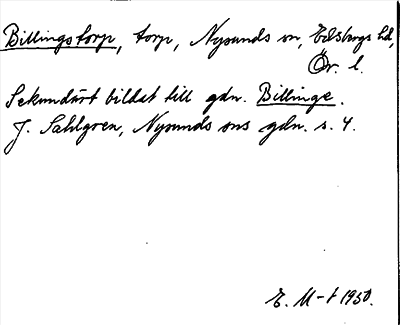 Billingstorp, torp, Nysunds sn, Edsbergs hd,
Ör. l.
Sekundärt bildat till gdn. Billinge.
J. Sahlgren, Nysunds sns gdn. s. 4.
E. M-t 1950.